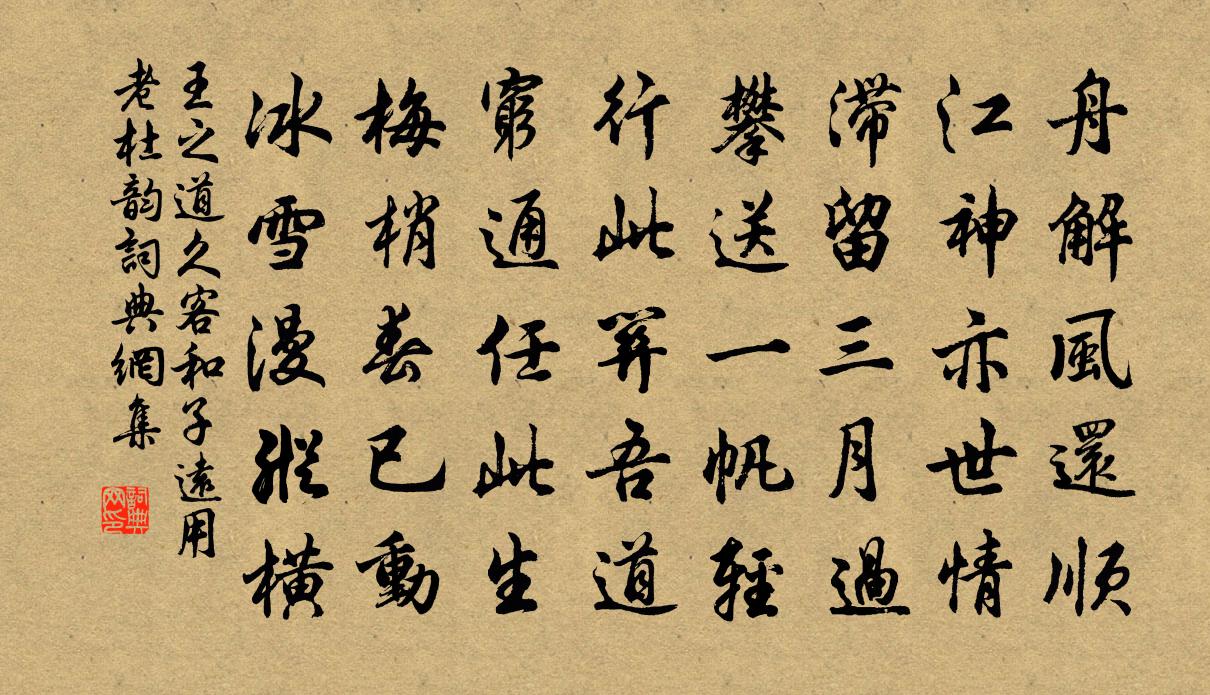 舟解風還順
江神亦世情
滯留三月過
攀送一帆輕
行此算吾道
窮通任此生
梅梢春已動
冰雪漫縱橫
王之道久客和子遠用
老杜韵詞典網集
詞典網印